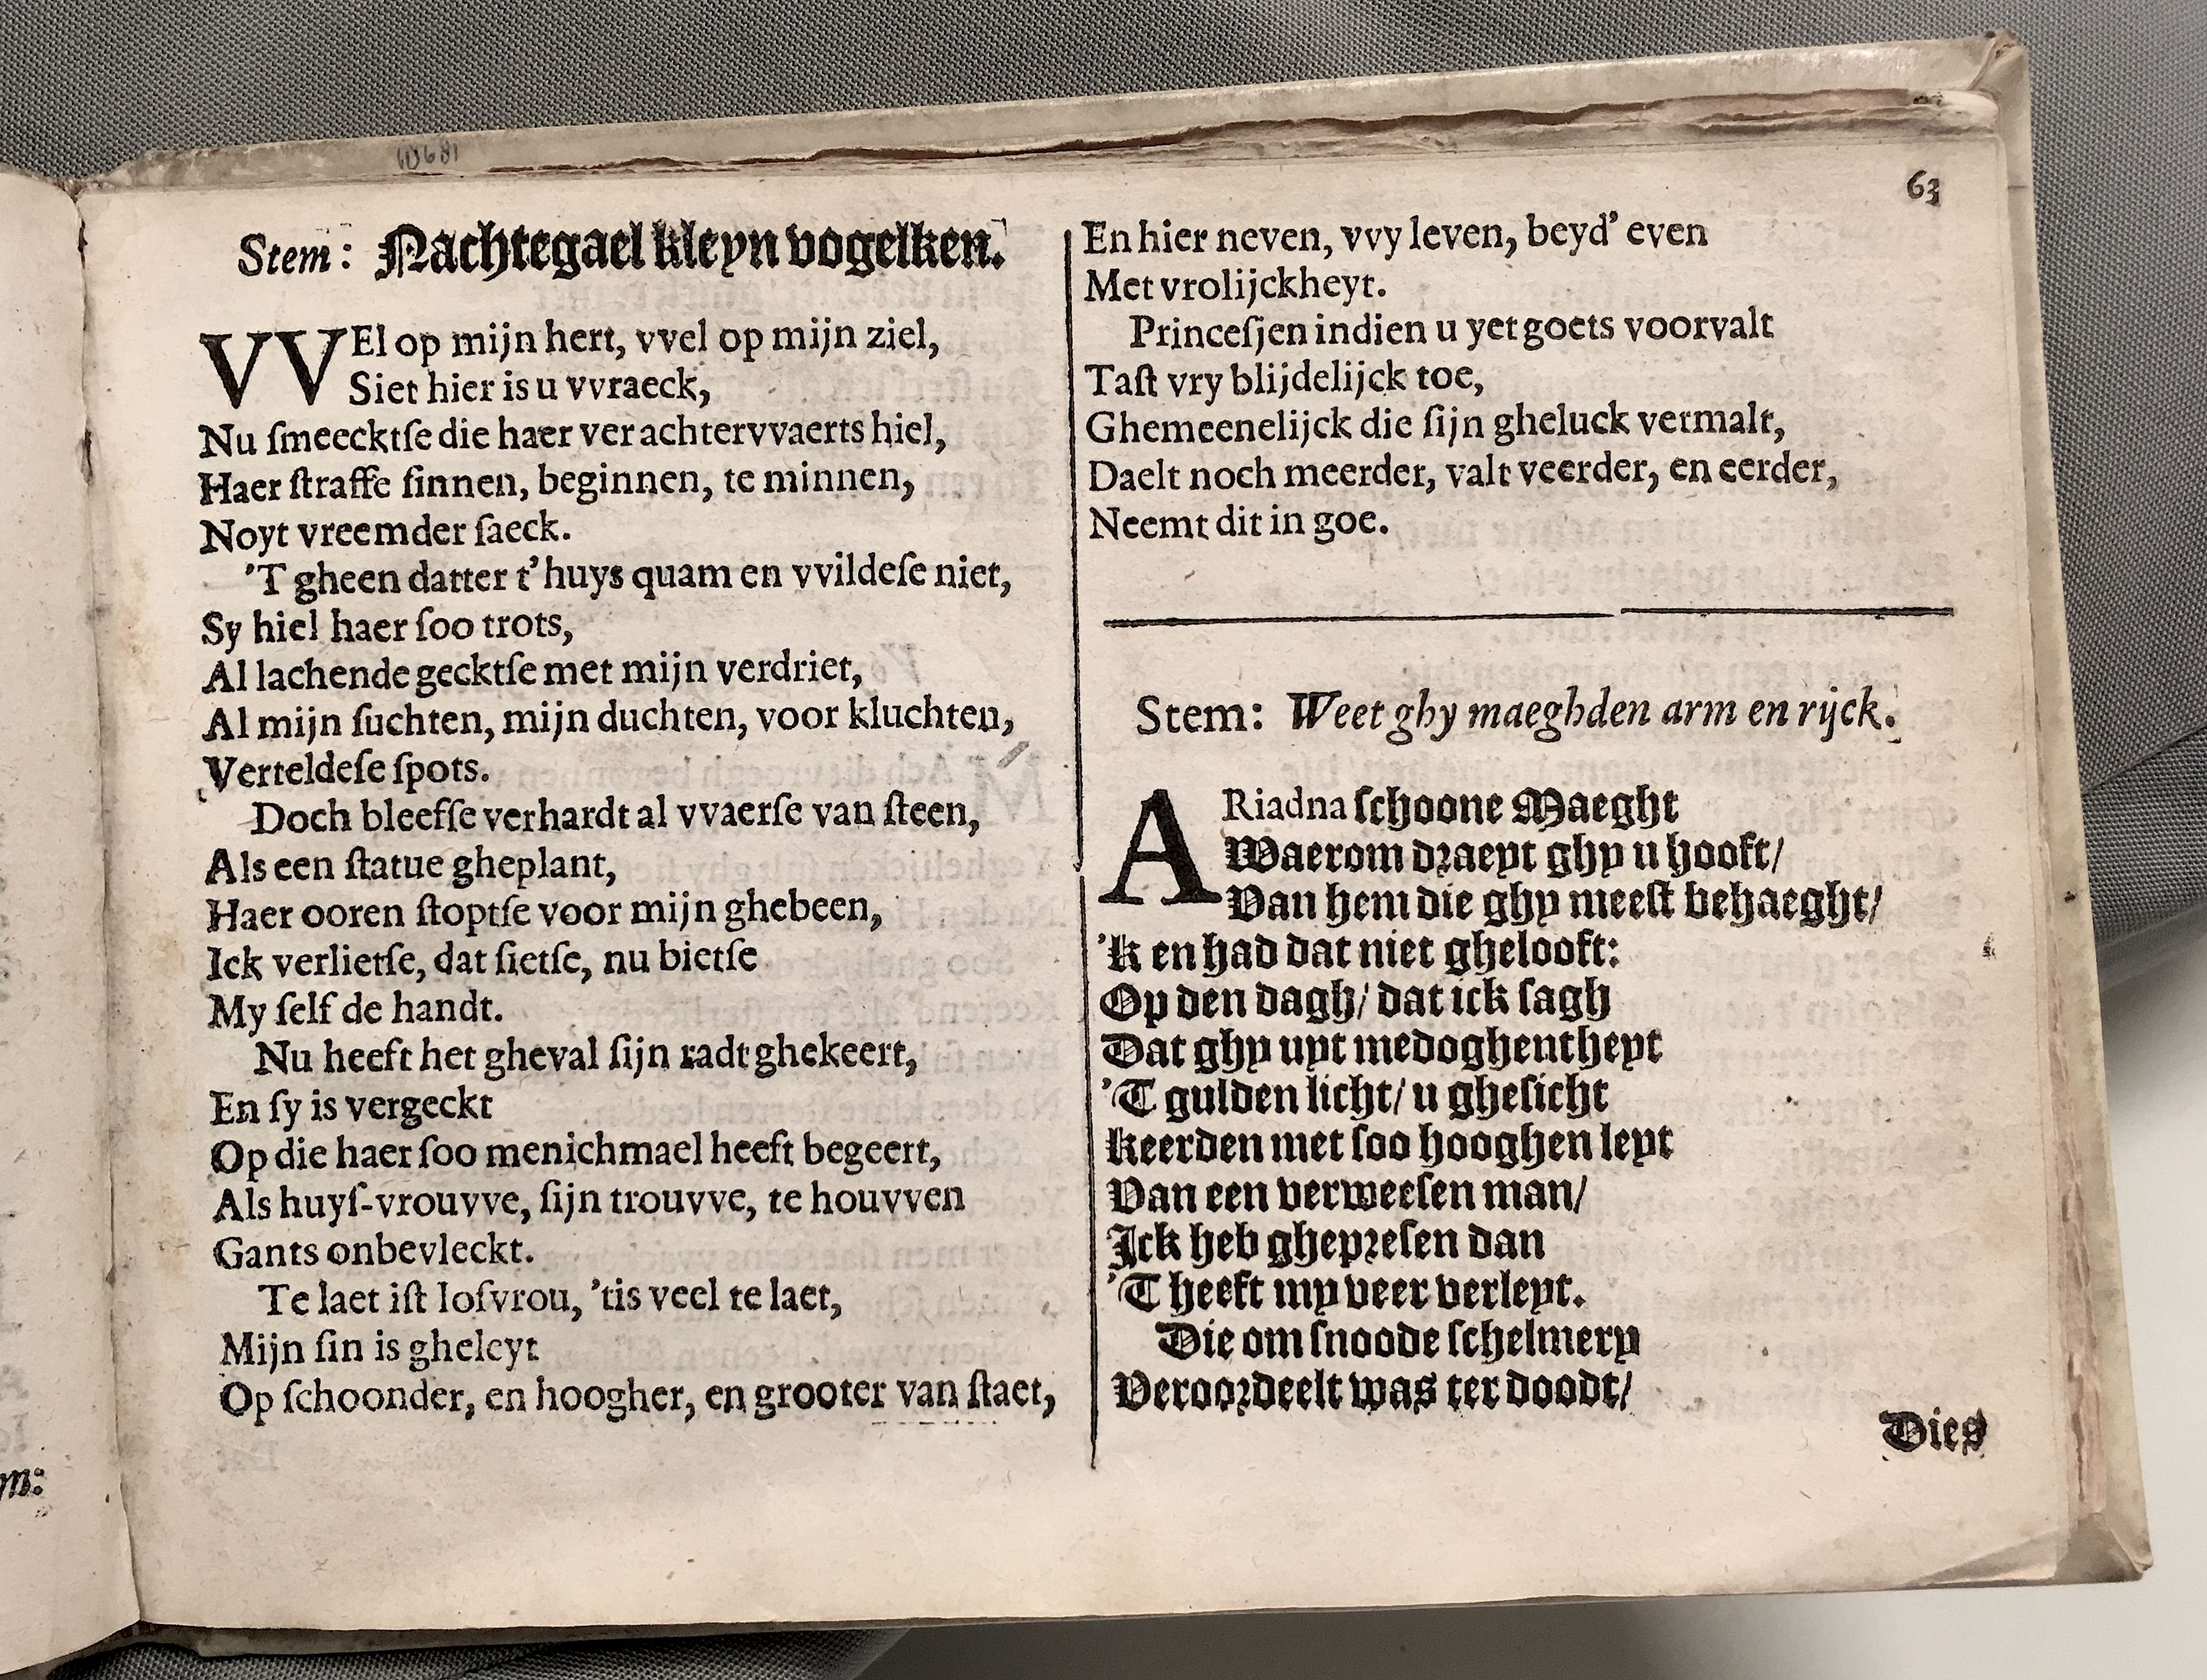 63
Stem: Nachtegael kleyn vogelken.
VVEl op mijn hert, vvel op mijn ziel,
Siet hier is u vvraeck,
Nu ſmeecktſe die haer ver achtervvaerts hiel,
Haer ſtraffe ſinnen, beginnen, te minnen,
Noyt vreemder ſaeck.
'T gheen datter t'huys quam en vvildeſe niet,
Sy hiel haer ſoo trots,
Al lachende gecktſe met mijn verdriet,
Al mijn ſuchten, mijn duchten, voor kluchten,
Verteldeſe ſpots.
Doch bleefſe verhardt al vvaerſe van ſteen,
Als een ſtatue gheplant,
Haer ooren ſtoptſe voor mijn ghebeen,
Ick verlietſe, dat ſietſe, nu bietſe
My ſelf de handt.
Nu heeft het gheval ſijn radt ghekeert,
En ſy is vergeckt
Op die haer ſoo menichmael heeft begeert,
Als huyſ-vrouvve, ſijn trouvve, te houvven
Gants onbevleckt.
Te laet iſt Ioſvrou, 'tis veel te laet,
Mijn ſin is gheleyt
Op ſchoonder, en hoogher, en grooter van ſtaet,
En hier neven, vvy leven, beyd' even
Met vrolijckheyt.
Princeſjen indien u yet goets voorvalt
Taſt vry blijdelijck toe,
Ghemeenelijck die ſijn gheluck vermalt,
Daelt noch meerder, valt veerder, en eerder,
Neemt dit in goe.
Stem: Weet ghy maeghden arm en rijck.
ARiadna ſchoone Maeght
Waerom draeyt ghy u hooft/
Van hem die ghy meeſt behaeght/
'k en had dat niet ghelooft:
Op den dagh/ dat ick ſagh
Dat ghy uyt medoghentheyt
'T gulden licht/ u gheſicht
Keerden met ſoo hooghen leyt
Van een verweeſen man/
Ick heb ghepreſen dan
'T heeft my veer verleyt.
Die om ſnoode ſchelmery
Veroordeelt was ter doodt/
Dies
m: